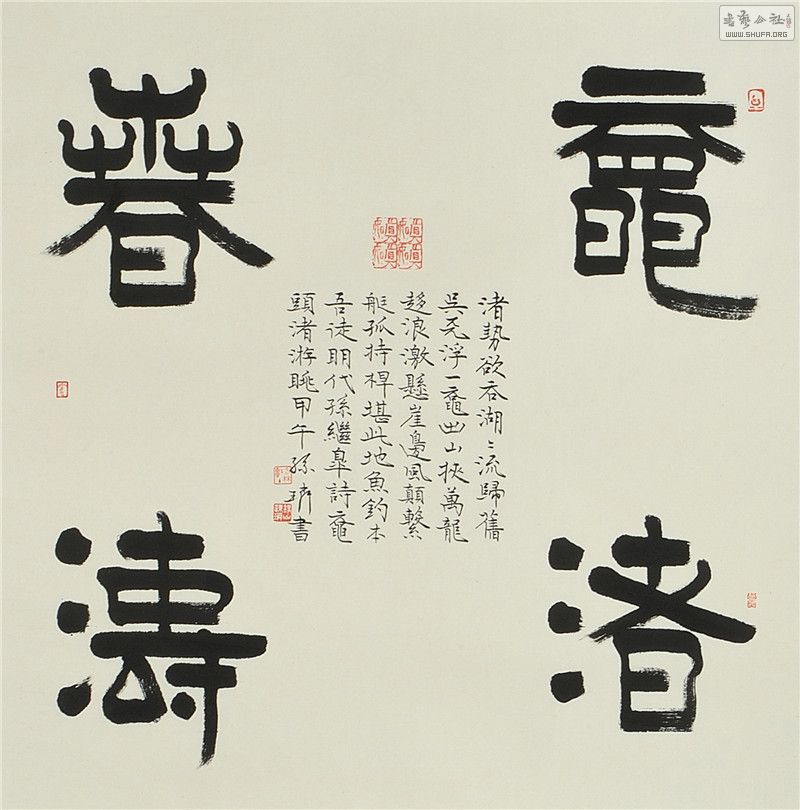 黿渚
春濤
渚勢欲吞湖〻流歸舊
吳天浮一黿出山挾萬龍
趨浪激懸崖邊風顛繫
艇孤持桿堪此地魚釣本
吾徒明代孫繼皐詩黿
頭渚游眺甲午孫璘書
書藝公社
WWW.SHUFA.ORG